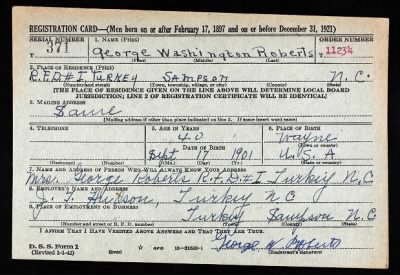 REGISTRATION CARD—(Men born on or after February 17, 1897 and on or before December 31, 1921)
SERIAL NUMBER 1. NAME (Print) ORDER NUMBER
T 371 George Washington Roberts T 11234
(First) (Middle) (Last)
2. PLACE OF RESIDENCE (Print)
R.F.D.#1 Turkey Sampson N.C.
(Number and street) (Town, township, village, or city) (County) (State)
[THE PLACE OF RESIDENCE GIVEN ON THE LINE ABOVE WILL DETERMINE LOCAL BOARD
JURISDICTION; LINE 2 OF REGISTRATION CERTIFICATE WILL BE IDENTICAL]
3. MAILING ADDRESS
Same
[Mailing address if other than place indicated on line 2. If same insert word same]
4. TELEPHONE 5. AGE IN YEARS 6. PLACE OF BIRTH
40 Wayne
DATE OF BIRTH (Town or county)
Sept 17 1901 U.S.A
(Exchange) (Number) (Mo.) (Day) (Yr.) (State or country)
7. NAME AND ADDRESS OF PERSON WHO WILL ALWAYS KNOW YOUR ADDRESS
Mrs. George Roberts R.F.D.#1 Turkey N.C
8. EMPLOYER'S NAME AND ADDRESS
Turkey N C
9. PLACE OF EMPLOYMENT OR BUSINESS
Turkey Sampson N.C
(Number and street or R. F. D. number) (Town) (County) (State)
I AFFIRM THAT I HAVE VERIFIED ABOVE ANSWERS AND THAT THEY ARE TRUE.
D. S. S. Form 1
(Revised 1-1-42) (over)
George W. Roberts
(Registrant's signature)